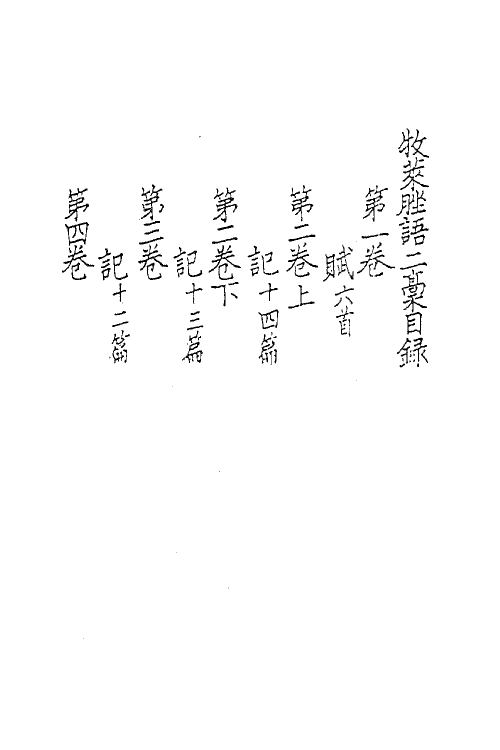 牧萊脞語二藁目録
第一卷
賦六首
第二卷上
記十四篇
第二卷下
記十三篇
第三卷
記十二篇
第四卷